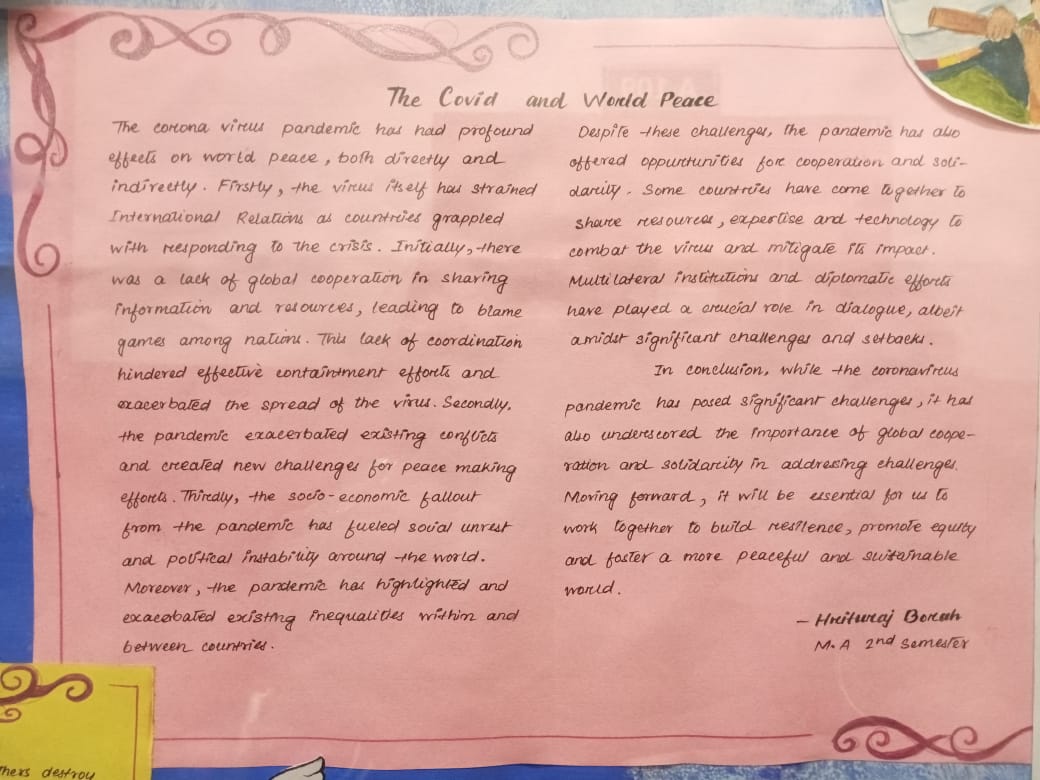 The Covid and World Peace
The corona virus pandemic has had profound
effects on world peace, both directly and
indirectly. Firstly, the virus itself has strained
International Relations as countries grappled
with responding to the crisis. Initially, there
was a lack of global cooperation in sharing
information and resources, leading to blame
games among nations. This lack of coordination
hindered effective containtment efforts and
exacerbated the spread of the virus. Secondly,
the pandemic exacerbated existing conflicts
and created new challenges for peace making
efforts. Thirdly, the socio-economic fallout
from the pandemic has fueled social unrest
and political instability around the world.
Moreover, the pandemic has highlighted and
exacerbated existing inequalities within and
between countries.
Despite these challenges, the pandemic has also
offered oppurtunities for cooperation and soli-
darity. Some countries have come together to
share resources, expertise and technology to
combat the virus and mitigate its impact.
Multilateral institutions and diplomatic efforts
have played a crucial role in dialogue, albeit
amidst significant challenges and setbacks.
In conclusion, while the coronavirus
pandemic has posed significant challenges, it has
also underscored the importance of global coope-
ration and solidarity in addressing challenges.
Moving forward, it will be essential for us to
work together to build resilence, promote equity
and foster a more peaceful and sustainable
world.
- Hrituraj Borah
M.A 2nd Semester
thers destroy